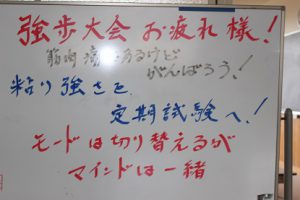 強歩大会 お疲れ様!
筋肉 痛 あるけど
がんばろう!
粘り強さを
定期試験へ!
モードは切り替えるが
マインドは一緒